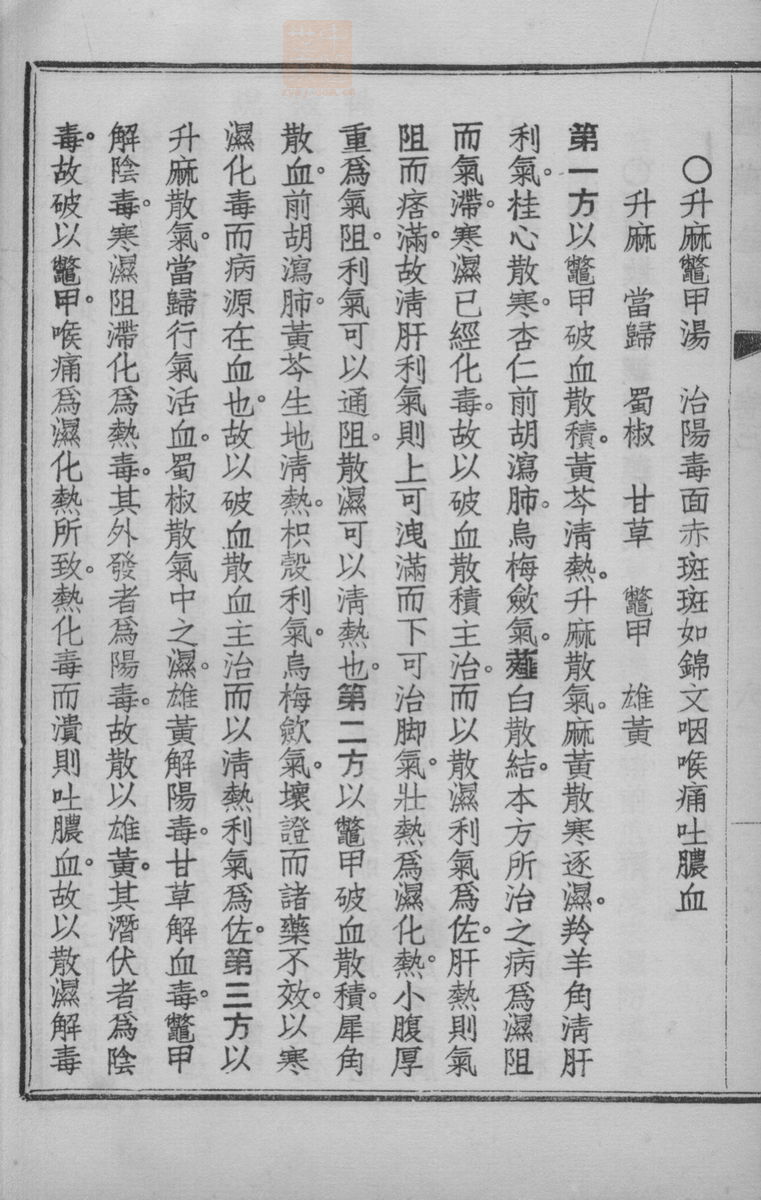 ○升麻鼈甲湯　治陽毒面赤斑斑如錦文咽喉痛吐膿血
升麻　當歸　蜀椒　甘草　鼈甲　雄黃
第一方以鼈甲破血散積。黃芩淸熱。升麻散氣。麻黃散寒逐濕。羚羊角淸肝
利氣。桂心散寒。杏仁前胡瀉肺。烏梅歛氣。薤白散結。本方所治之病爲濕阻
而氣滯。寒濕已經化毒。故以破血散積主治。而以散濕利氣爲佐。肝熱則氣
阻而痞滿。故淸肝利氣則上可洩滿而下可治脚氣。壯熱爲濕化熱。小腹厚
重爲氣阻。利氣可以通阻。散濕可以淸熱也。第二方以鼈甲破血散積。犀角
散血。前胡瀉肺。黃芩生地淸熱。枳殼利氣。烏梅歛氣。壞證而諸藥不效。以寒
濕化毒而病源在血也。故以破血散血主治而以淸熱利氣爲佐。第三方以
升麻散氣。當歸行氣活血。蜀椒散氣中之濕。雄黃解陽毒。甘草解血毒。鼈甲
解陰毒。寒濕阻滯化爲熱毒。其外發者爲陽毒。故散以雄黃。其潛伏者爲陰
毒。故破以鼈甲。喉痛爲濕化熱所致。熱化毒而潰則吐膿血。故以散濕解毒